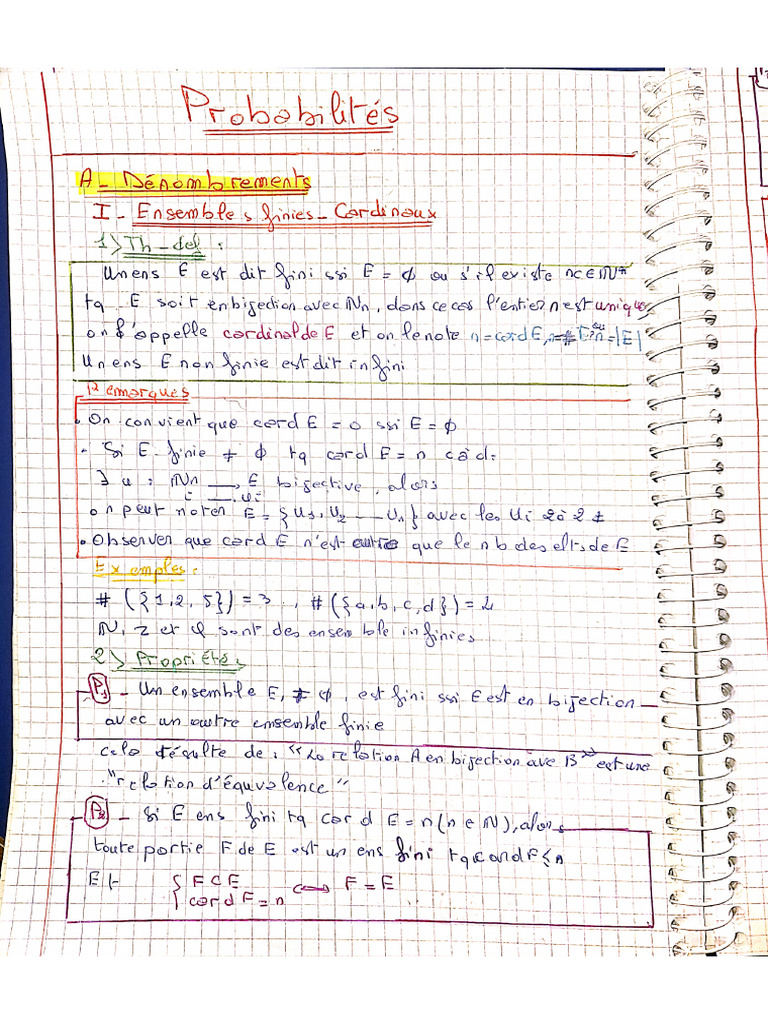 Probabilités
A - Dénombrements
I - Ensembles finies - Cardinaux
1) Th - def :
Un ens E est dit fini ssi E = ∅ ou s'il existe n ∈ ℕ*
tq E soit en bijection avec ℕn, dans ce cas l'entier n est unique
on l'appelle cardinal de E et on le note n = card E, n = #E ou n = |E|
Un ens E non finie est dit infini
Remarques
• On convient que card E = 0 ssi E = ∅
• Si E finie ≠ ∅ tq card E = n càd :
∃ u : ℕn → E bijective, alors
i → ui
on peut noter E = {u1, u2 --- un} avec les ui 2 à 2 ≠
• Observer que card E n'est autre que le nb des elts de E
Exemples :
# ({1, 2, 5}) = 3 , # ({a, b, c, d}) = 4
ℕ, Z et Q sont des ensemble infinies
2) Propriétés
P1 - Un ensemble E, ≠ ∅, est fini ssi E est en bijection
avec un autre ensemble finie
cela résulte de : "La relation A en bijection ave B" est une
"relation d'équvalence"
P2 - Si E ens fini tq card E = n (n ∈ ℕ), alors
toute partie F de E est un ens fini tq card F ≤ n
Et { F ⊂ E
card F = n ⟺ F = E